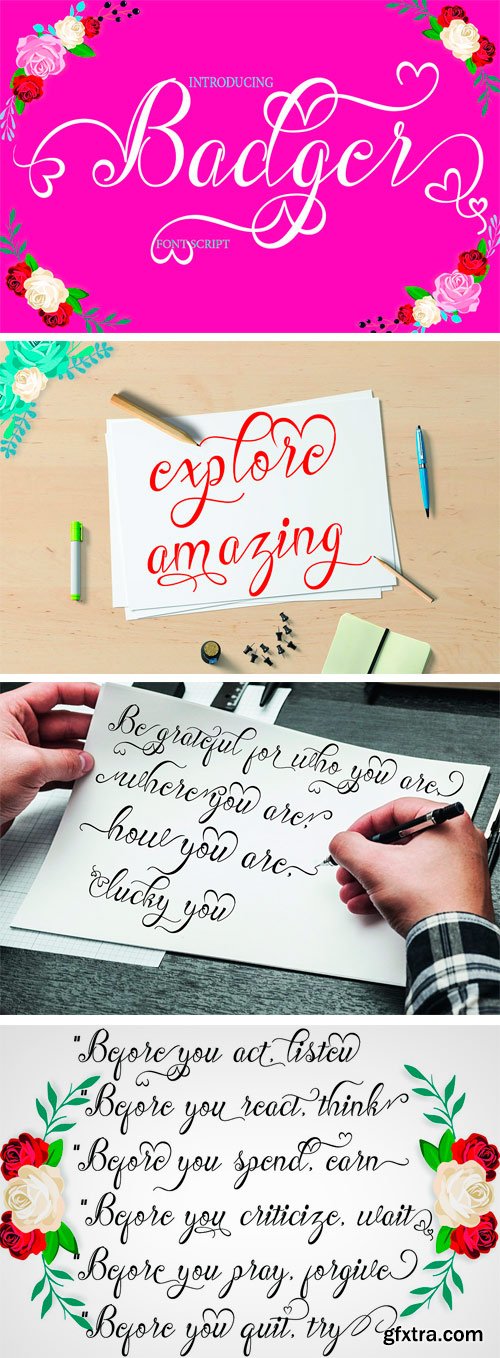 INTRODUCING
Badger
FONT SCRIPT
explore
amazing
Be grateful for who you are,
where you are,
how you are,
lucky you
"Before you act, listen
"Before you react, think
"Before you spend, earn
"Before you criticize, wait
"Before you pray, forgive
"Before you quit, try
gfxtra.com